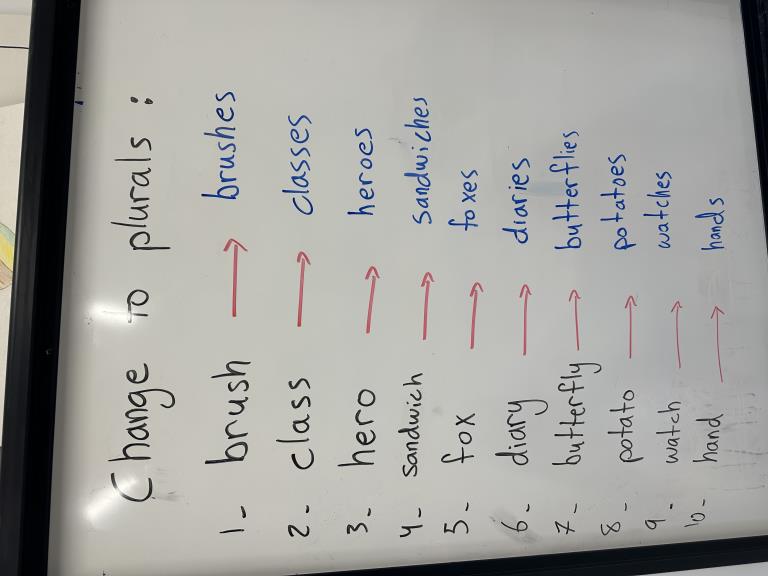 Change to plurals:
1- brush → brushes
2- class → classes
3- hero → heroes
4- sandwich → sandwiches
5- fox → foxes
6- diary → diaries
7- butterfly → butterflies
8- potato → potatoes
9- watch → watches
10- hand → hands